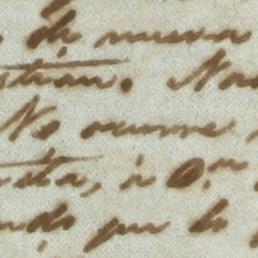 de nueva
stian. Na
No ocurre
sta, à O.n
ndo por lo